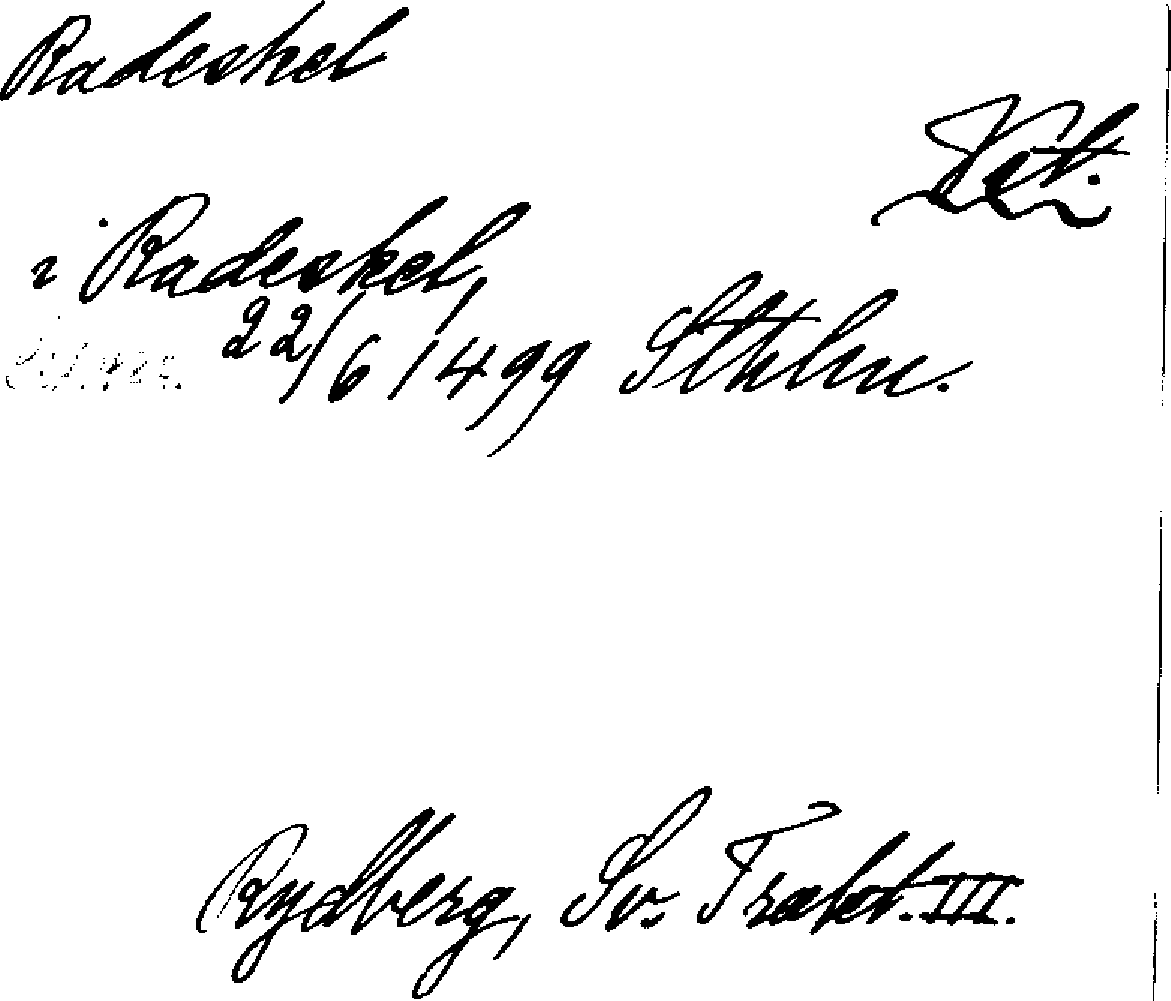 Radeskel
Vet.
i Radeskel,
22/6 1499 Sthlm.
Rydberg, Sv. Trakt. III.